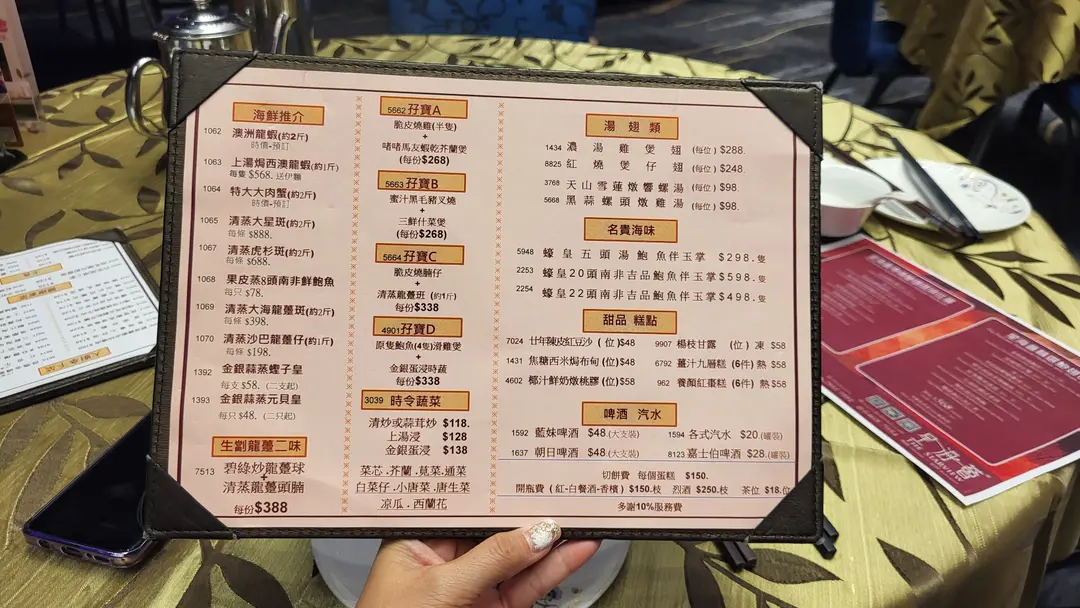 海鮮推介
1062 澳洲龍蝦(約2斤)
時價-預訂
1063 上湯焗西澳龍蝦(約1斤)
每隻 $568. 送伊麵
1064 特大大肉蟹(約2斤)
時價-預訂
1065 清蒸大星斑(約2斤)
每條 $888.
1067 清蒸虎杉斑(約2斤)
每條 $688.
1068 果皮蒸8頭南非鮮鮑魚
每只 $78.
1069 清蒸大海龍躉斑(約2斤)
每條 $398.
1070 清蒸沙巴龍躉仔(約1斤)
每條 $198.
1392 金銀蒜蒸蟶子皇
每支 $58. (二支起)
1393 金銀蒜蒸元貝皇
每只 $48. (二只起)
生劏龍躉二味
7513 碧綠炒龍躉球
+
清蒸龍躉頭腩
每份$388
5662孖寶A
脆皮燒雞(半隻)
+
啫啫馬友蝦乾芥蘭煲
(每份$268)
5663孖寶B
蜜汁黑毛豬叉燒
+
三鮮什菜煲
(每份$268)
5664孖寶C
脆皮燒腩仔
+
清蒸龍躉班 (約1斤)
每份$338
4901孖寶D
原隻鮑魚(4隻)滑雞煲
+
金銀蛋浸時蔬
每份$338
3039 時令蔬菜
清炒或蒜茸炒 $118.
上湯浸 $128
金銀蛋浸 $138
菜芯.芥蘭.莧菜.通菜
白菜仔.小唐菜.唐生菜
凉瓜.西蘭花
湯 翅 類
1434 濃湯雞煲翅 (每位) $288.
8825 紅燒煲仔翅 (每位) $248.
3768 天山雪蓮燉響螺湯 (每位) $98.
5668 黑蒜螺頭燉雞湯 (每位) $98.
名貴海味
5948 蠔皇五頭湯鮑魚伴玉掌 $298.隻
2253 蠔皇20頭南非吉品鮑魚伴玉掌 $598.隻
2254 蠔皇22頭南非吉品鮑魚伴玉掌 $498.隻
甜品 糕點
7024 廿年陳皮紅豆沙 (位) $48 9907 楊枝甘露 (位) 凍 $58
1431 焦糖西米焗布甸 (位) $48 6792 薑汁九層糕 (6件) 熱 $58
4602 椰汁鮮奶燉桃膠 (位) $58 962 養顏紅棗糕 (6件) 熱 $58
啤酒 汽水
1592 藍妹啤酒 $48 (大支裝) 1594 各式汽水 $20 (罐裝)
1637 朝日啤酒 $48 (大支裝) 8123 嘉士伯啤酒 $28 (罐裝)
切餅費 每個蛋糕 $150.
開瓶費 (紅-白餐酒-香檳) $150.枝 烈酒 $250.枝 茶位 $18.位
多謝10%服務費